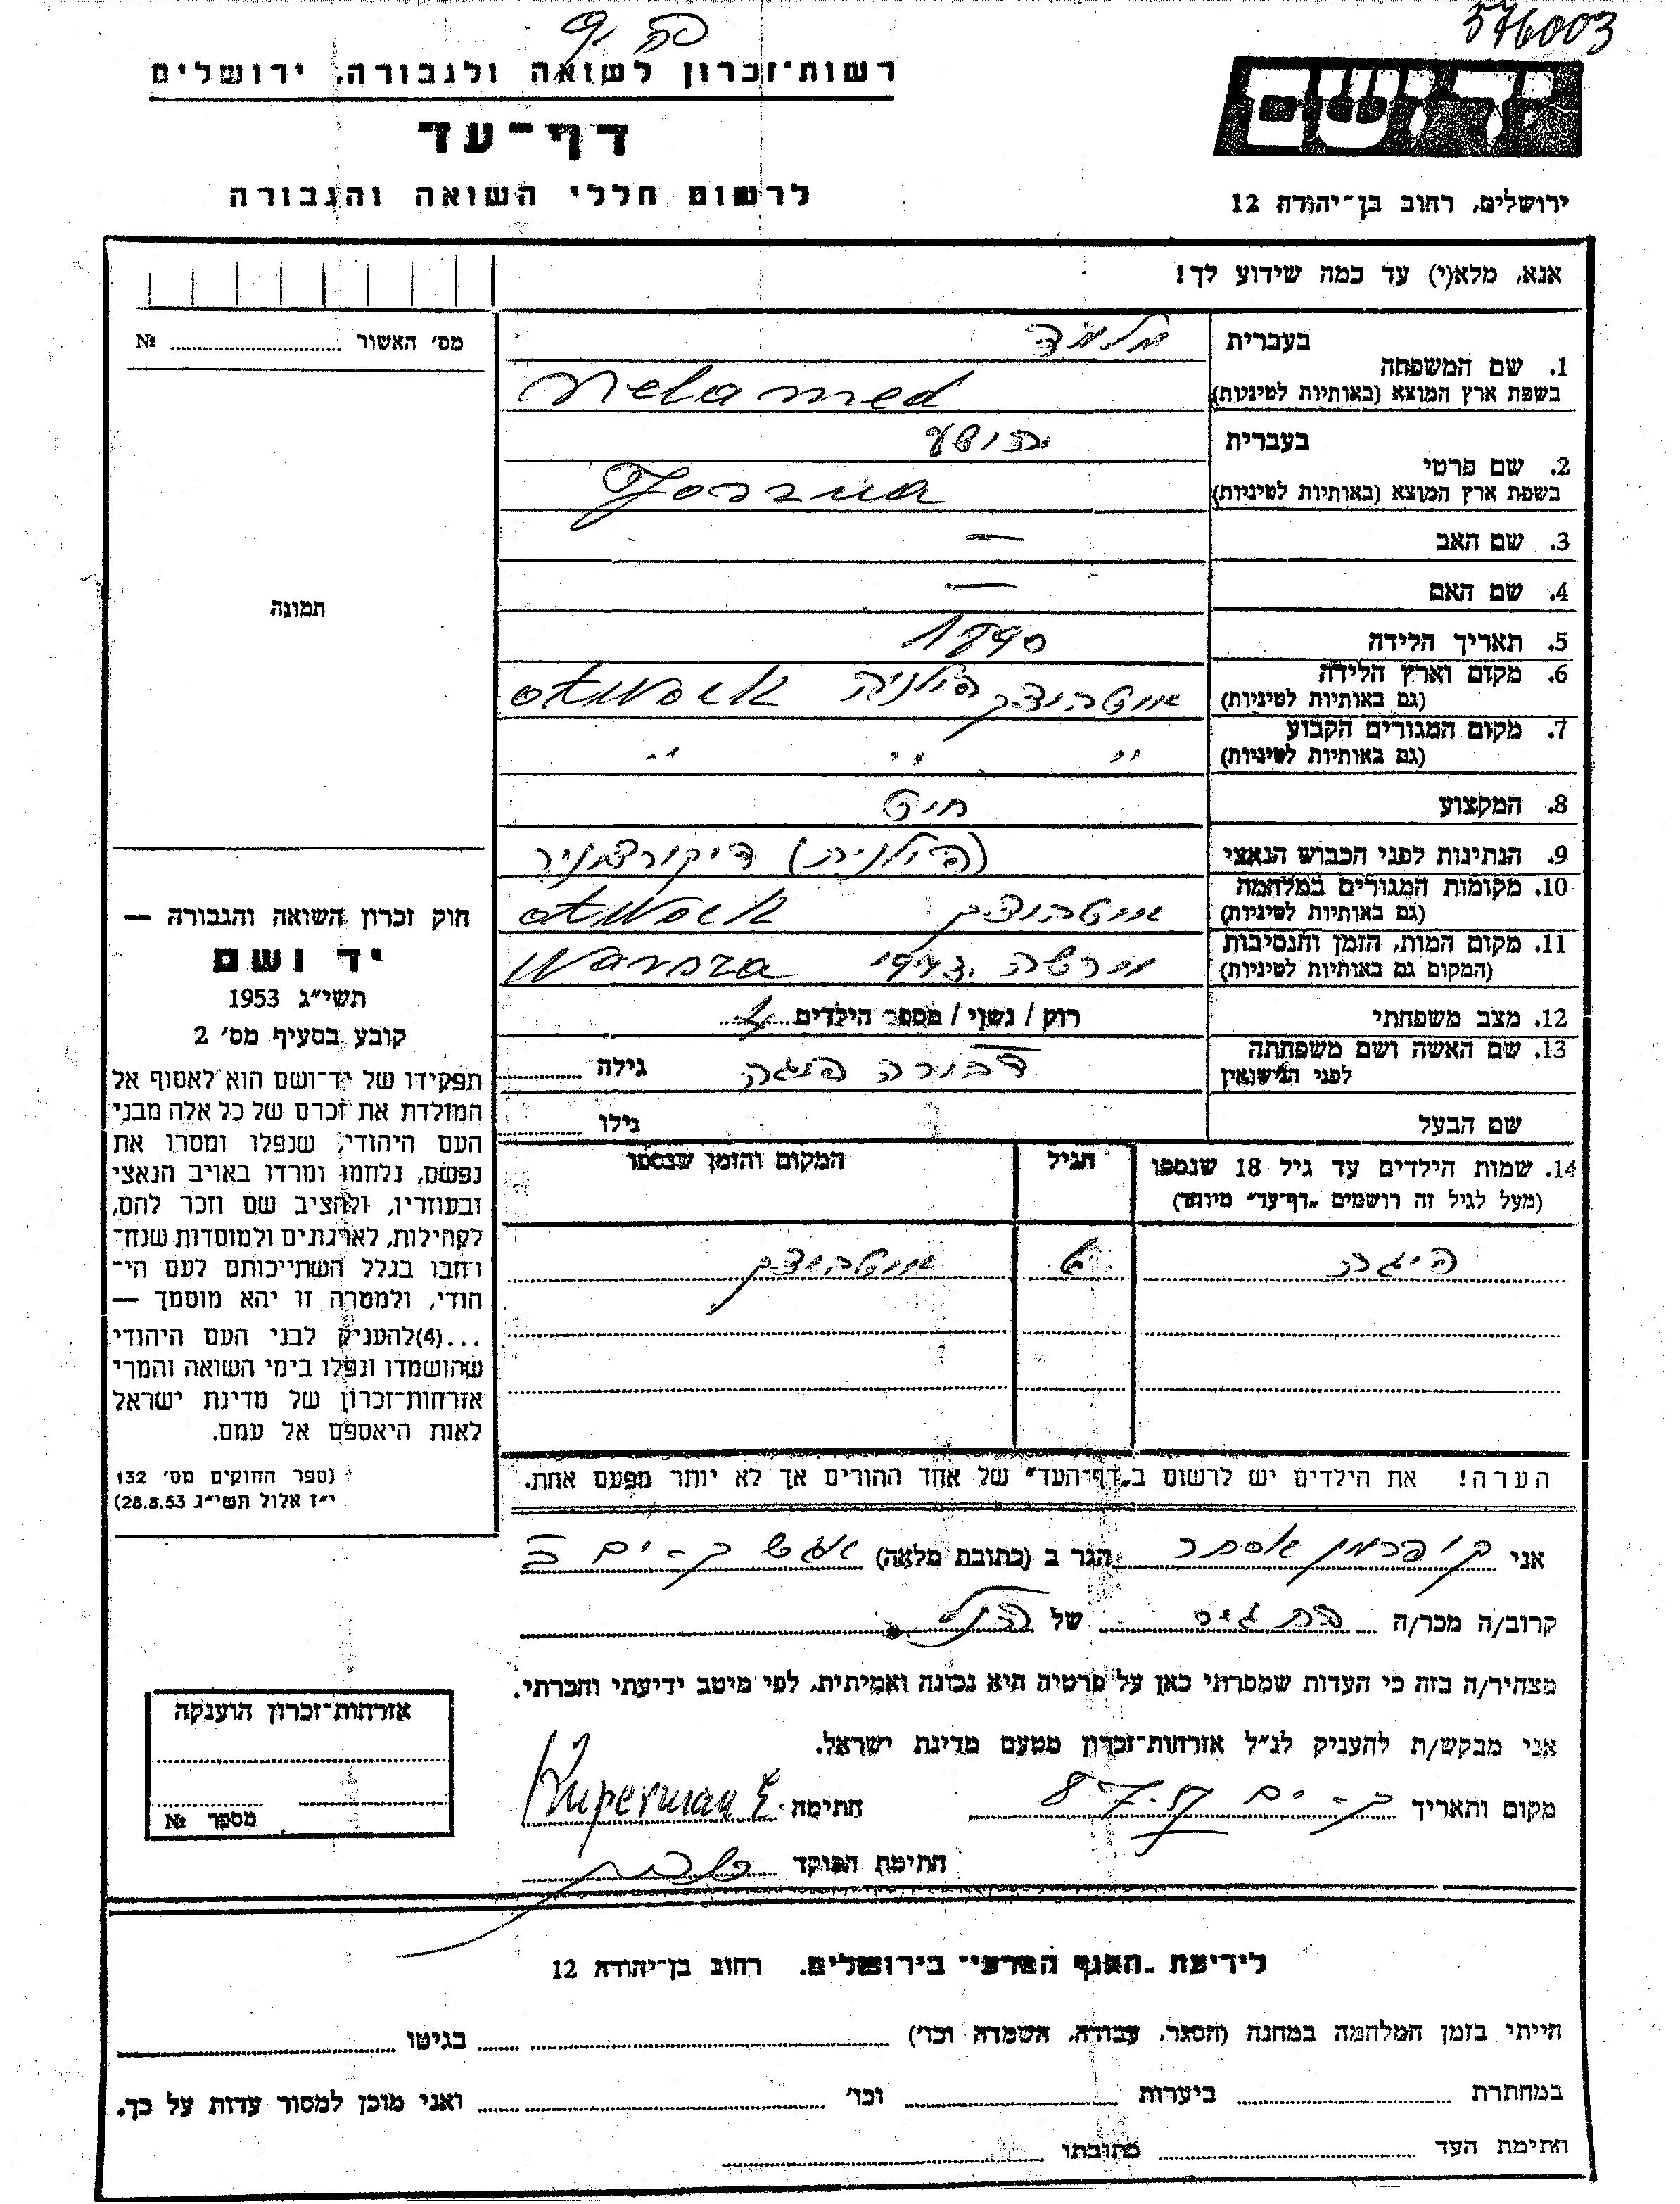 576003
רשות־זכרון לשואה ולגבורה, ירושלים
דף־עד
לרשום חללי השואה והגבורה
יד ושם
ירושלים, רחוב בן־יהודה 12
אנא, מלא(י) עד כמה שידוע לך!
מס׳ האשור № ........
תמונה
1. שם המשפחה
בעברית מלמד
בשפת ארץ המוצא (באותיות לטיניות) Melamed
2. שם פרטי
בעברית יהושע
בשפת ארץ המוצא (באותיות לטיניות) Joszua
3. שם האב —
4. שם האם —
5. תאריך הלידה 1890
6. מקום וארץ הלידה (גם באותיות לטיניות) אוטבוצק פולניה otwock
7. מקום המגורים הקבוע (גם באותיות לטיניות) " " "
8. המקצוע חיט
9. הנתינות לפני הכבוש הנאצי (פולנית)
10. מקומות המגורים במלחמה (גם באותיות לטיניות) אוטבוצק otwock
11. מקום המות, הזמן והנסיבות (המקום גם באותיות לטיניות) ורשה 1943 Warsza
12. מצב משפחתי רוק / נשוי / מספר הילדים
13. שם האשה ושם משפחתה לפני הנישואין דבורה גילה
שם הבעל גילו
14. שמות הילדים עד גיל 18 שנספו הגיל המקום והזמן שנספו
(מעל לגיל זה רושמים „דף־עד" מיוחד)
אוטבוצק
הערה! את הילדים יש לרשום ב„דף־העד" של אחד ההורים אך לא יותר מפעם אחת.
חוק זכרון השואה והגבורה —
יד ושם
תשי״ג 1953
קובע בסעיף מס׳ 2
תפקידו של יד־ושם הוא לאסוף אל
המולדת את זכרם של כל אלה מבני
העם היהודי, שנפלו ומסרו את
נפשם, נלחמו ומרדו באויב הנאצי
ובעוזריו, ולהציב שם וזכר להם,
לקהילות, לארגונים ולמוסדות שנח־
רבו בגלל השתייכותם לעם הי־
הודי, ולמטרה זו יהא מוסמך —
...(4)להעניק לבני העם היהודי
שהושמדו ונפלו בימי השואה והמרי
אזרחות־זכרון של מדינת ישראל
לאות היאספם אל עמם.
(ספר החוקים מס׳ 132
י״ז אלול תשי״ג 28.8.53)
אני קופרמן אסתר הגר ב (כתובת מלאה)
קרוב/ה מכר/ה בת גיס של הנ״ל
מצהיר/ה בזה כי העדות שמסרתי כאן על פרטיה היא נכונה ואמיתית, לפי מיטב ידיעתי והכרתי.
אני מבקש/ת להעניק לנ״ל אזרחות־זכרון מטעם מדינת ישראל.
מקום ותאריך ק - ים 8.7.57 חתימה Kuperman E.
חתימת הפוקד
אזרחות־זכרון הוענקה
מספר №
לידיעת „האגף המרכזי" בירושלים, רחוב בן־יהודה 12
הייתי בזמן המלחמה במחנה (הסגר, עבודה, השמדה וכו׳) בגיטו
במחתרת ביערות וכו׳ ואני מוכן למסור עדות על כך.
חתימת העד כתובתו